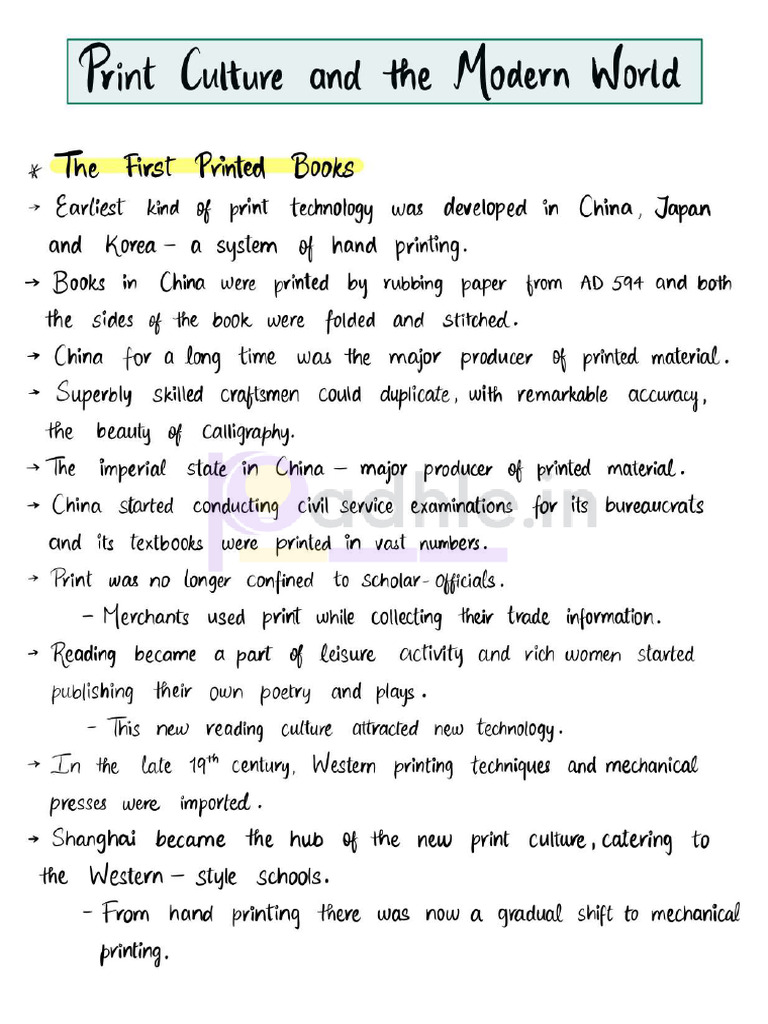 Print Culture and the Modern World
* The First Printed Books
→ Earliest kind of print technology was developed in China, Japan
and Korea – a system of hand printing.
→ Books in China were printed by rubbing paper from AD 594 and both
the sides of the book were folded and stitched.
→ China for a long time was the major producer of printed material.
→ Superbly skilled craftsmen could duplicate, with remarkable accuracy,
the beauty of calligraphy.
→ The imperial state in China – major producer of printed material.
→ China started conducting civil service examinations for its bureaucrats
padhle.in
and its textbooks were printed in vast numbers.
→ Print was no longer confined to scholar-officials.
– Merchants used print while collecting their trade information.
→ Reading became a part of leisure activity and rich women started
publishing their own poetry and plays.
- This new reading culture attracted new technology.
→ In the late 19th century, Western printing techniques and mechanical
presses were imported.
→ Shanghai became the hub of the new print culture, catering to
the Western – style schools.
- From hand printing there was now a gradual shift to mechanical
printing.